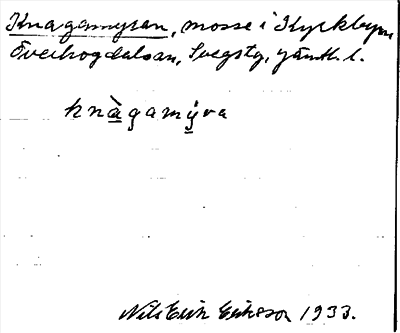 Knagamyran, mosse i Kyrkbyn,
Överhogdalssn, Svegstg, Jämtl. l.
knàgamýra
Nils Erik Eriksson 1933.